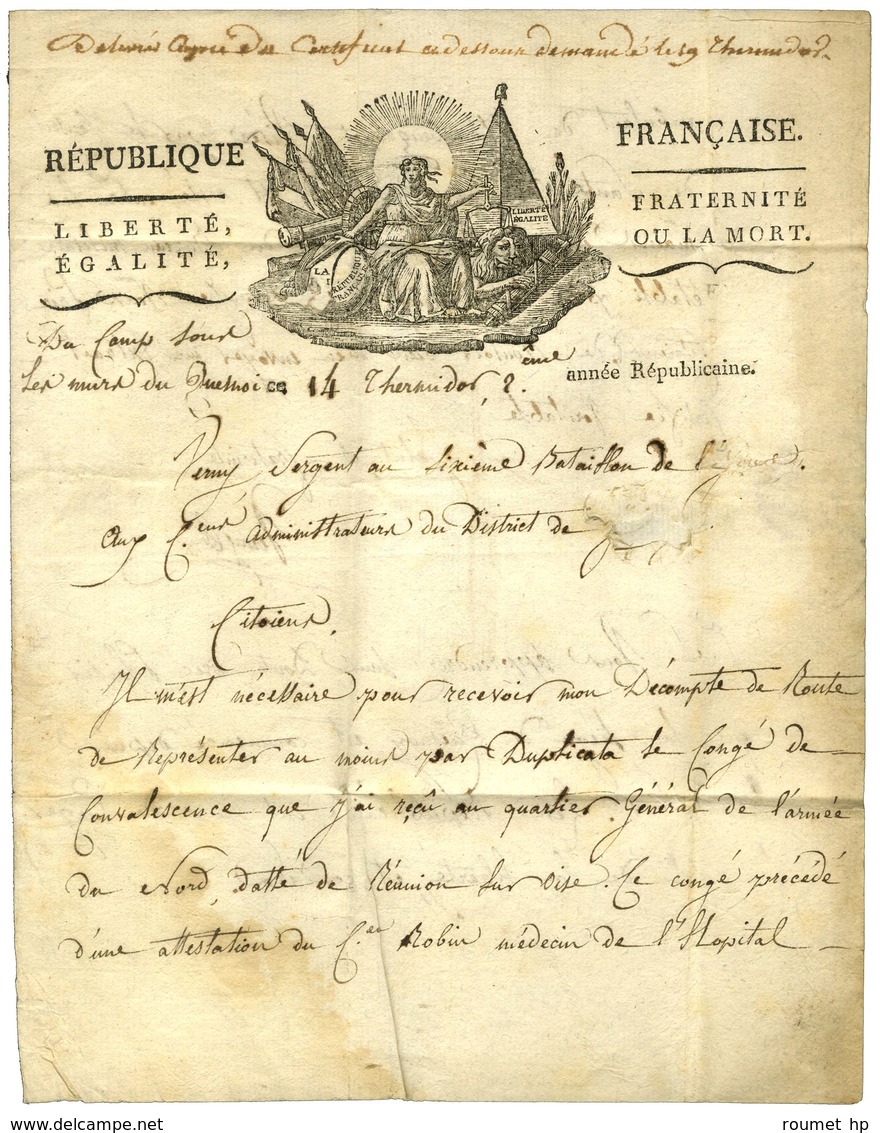 Délivré copie du Certificat cy dessous demandé le 19 Thermidor.
RÉPUBLIQUE FRANÇAISE.
LIBERTÉ, FRATERNITÉ
ÉGALITÉ, OU LA MORT.
LIBERTÉ
ÉGALITÉ
LA
RÉPUBLIQUE
FRANÇAISE
Du Camp sous
Les murs du Quesnoi ce 14 Thermidor 2.ème année Républicaine.
Sergent au Sixième Bataillon de
Aux C.ens Administrateurs du District de
Citoiens,
Il m'est nécessaire pour recevoir mon Décompte de Route
de Représenter au moins par Duplicata le Congé de
Convalescence que j'ai reçû au quartier Général de l'armée
du Nord, datté de Réunion sur Oise. Ce congé précédé
d'une attestation du C.en Robin médecin de l'Hopital
roumet hp